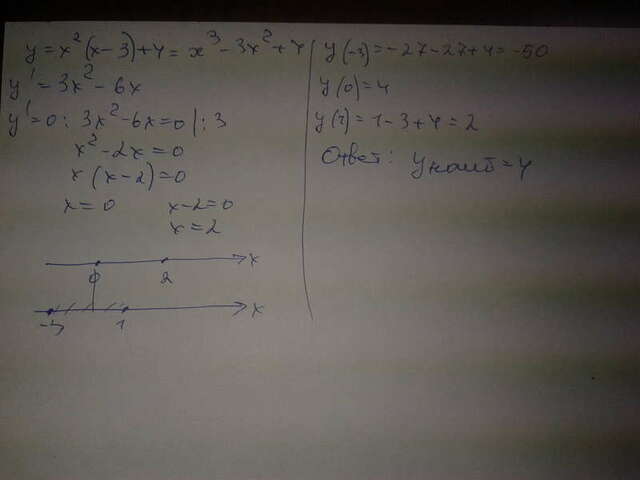 y = x²(x-3)+4 = x³-3x²+4
y' = 3x² - 6x
y'=0: 3x²-6x=0 |:3
x²-2x=0
x(x-2)=0
x=0 x-2=0
x=2
x
0 2
x
-3 1
y(-3)=-27-27+4=-50
y(0)=4
y(1)=1-3+4=2
Ответ: yнаиб=4